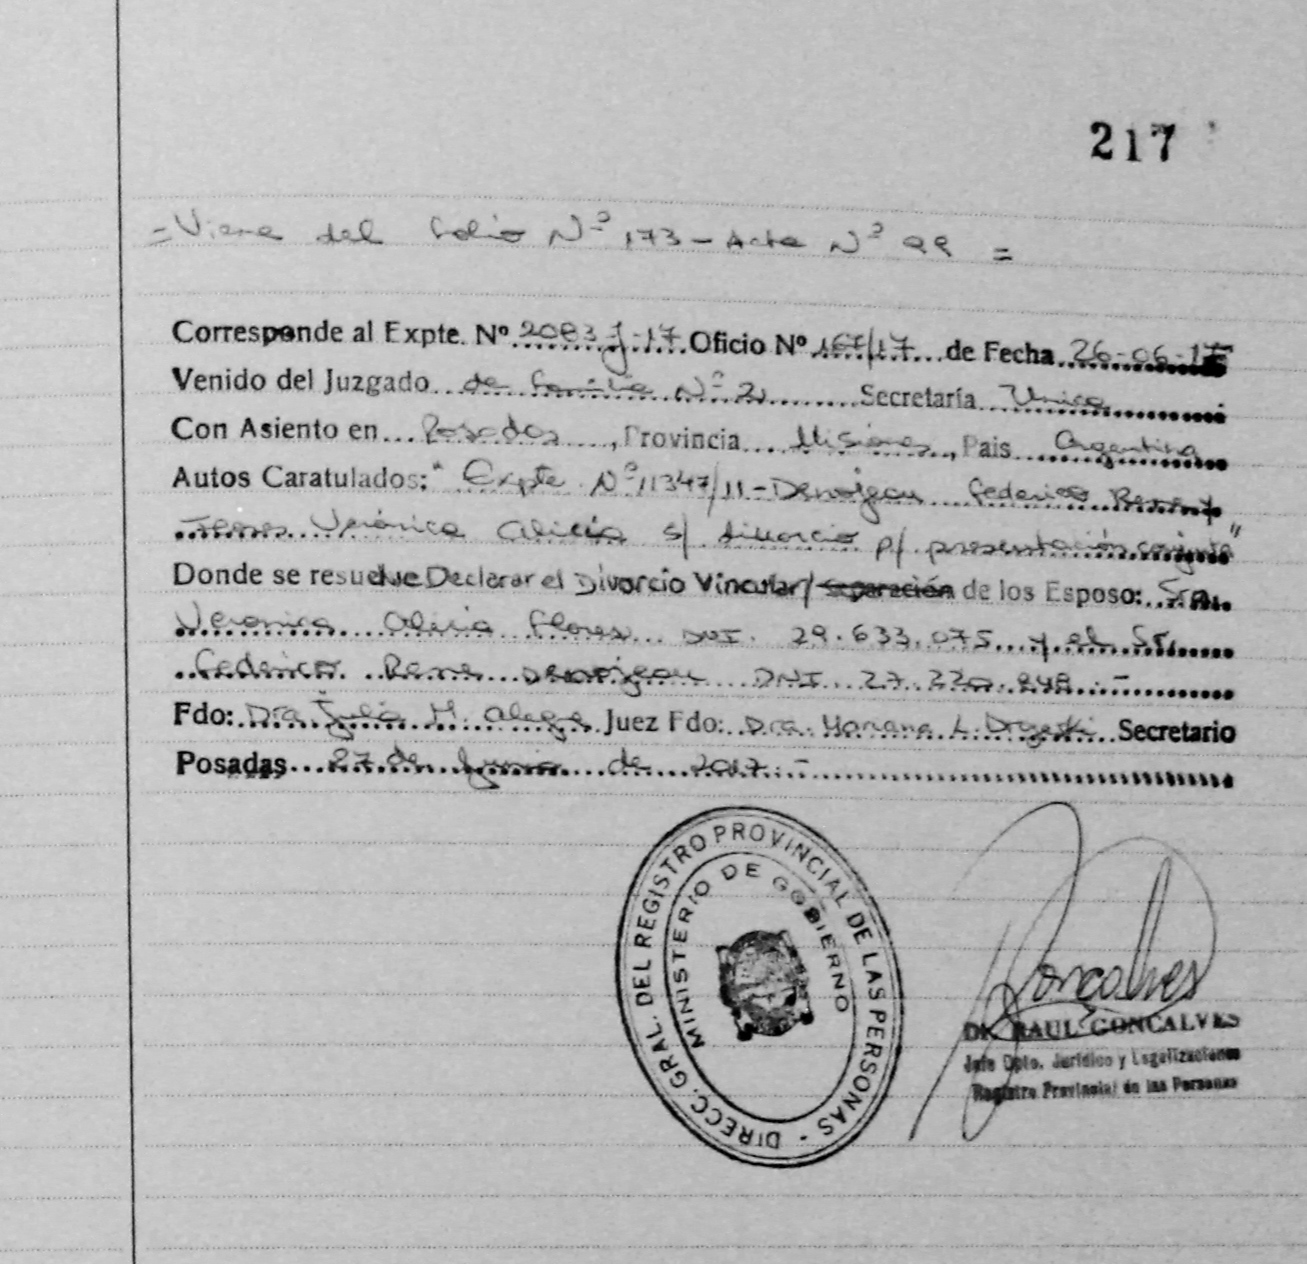 217
= Viene del folio Nº 173 - Acta Nº 99 =
Corresponde al Expte. Nº 2083 J-17 Oficio Nº 167/17 de Fecha 26-06-17
Venido del Juzgado de familia Nº 2 Secretaría Unica
Con Asiento en Posadas, Provincia Misiones, Pais Argentina
Autos Caratulados: "Expte Nº 11347/11 - Demojeau Federico Rene y
Flores Verónica Alicia s/ divorcio p/ presentación conjunta"
Donde se resuelve Declarar el Divorcio Vincular/ separación de los Esposo: Sra.
Veronica Alicia Flores DNI. 29.633.075 y el Sr.
Federico Rene DNI 27.220.848.-
Fdo: Dra Julia M. Alegre Juez Fdo: Dra. Mariana L. Secretario
Posadas 27 de Junio de 2017.-
DIRECC. GRAL. DEL REGISTRO PROVINCIAL DE LAS PERSONAS -
MINISTERIO DE GOBIERNO
Goncalves
DR. RAUL GONCALVES
Jefe Dpto. Jurídico y Legalizaciones
Registro Provincial de las Personas